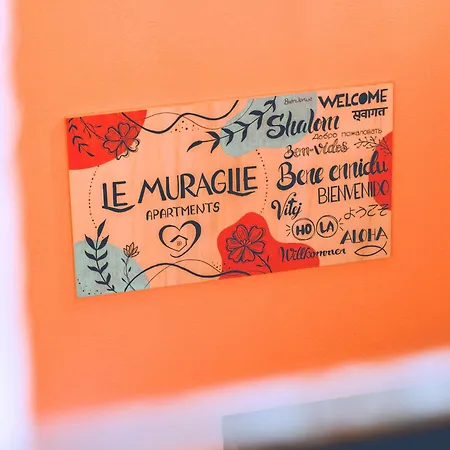 LE MURAGLIE
APARTMENTS
Bienvenue
WELCOME
स्वागत
Shalom
Добро пожаловать
Bem-vindos
Bene ennidu
BIENVENIDO
Vítej
ようこそ
HO LA
ALOHA
Willkommen